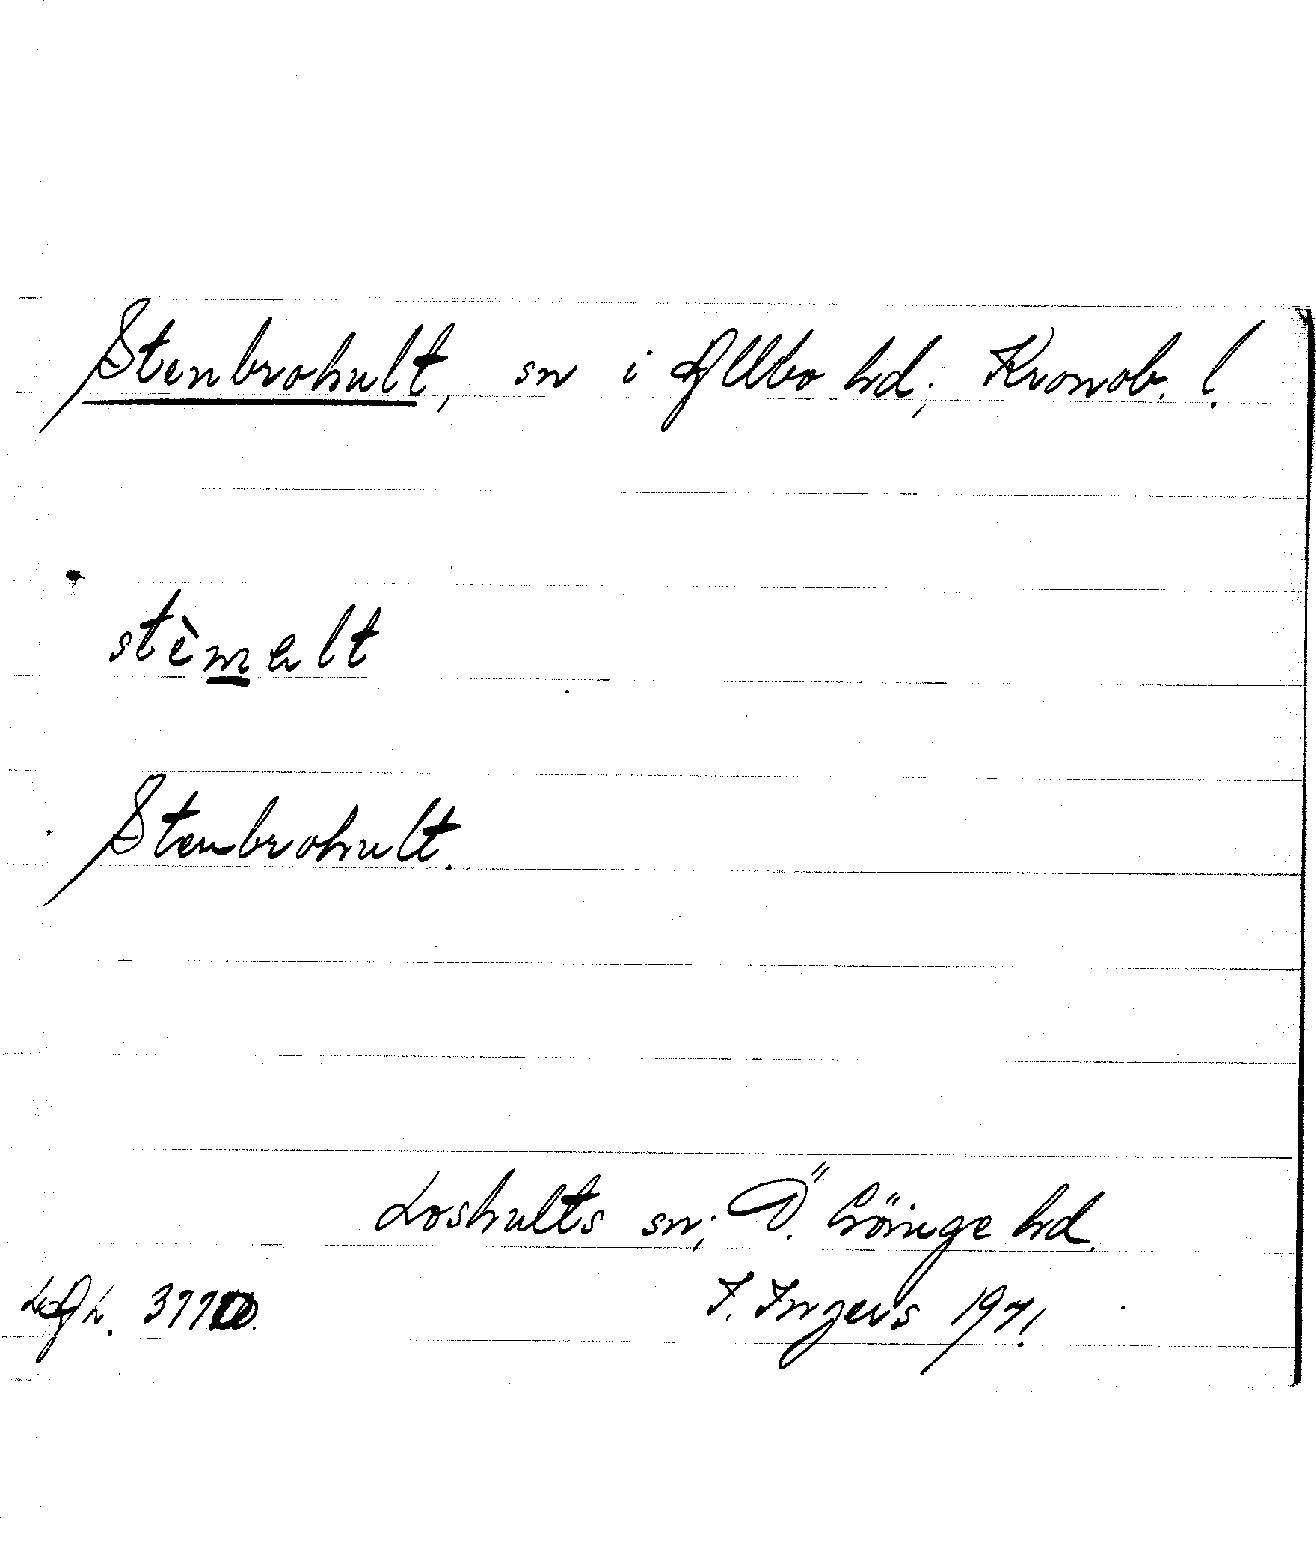 Stenbrohult, sn i Allbo hd, Kronob. l.
stèmalt
Stenbrohult.
Loshults sn; Ö. Göinge hd.
I. Ingers 1971.